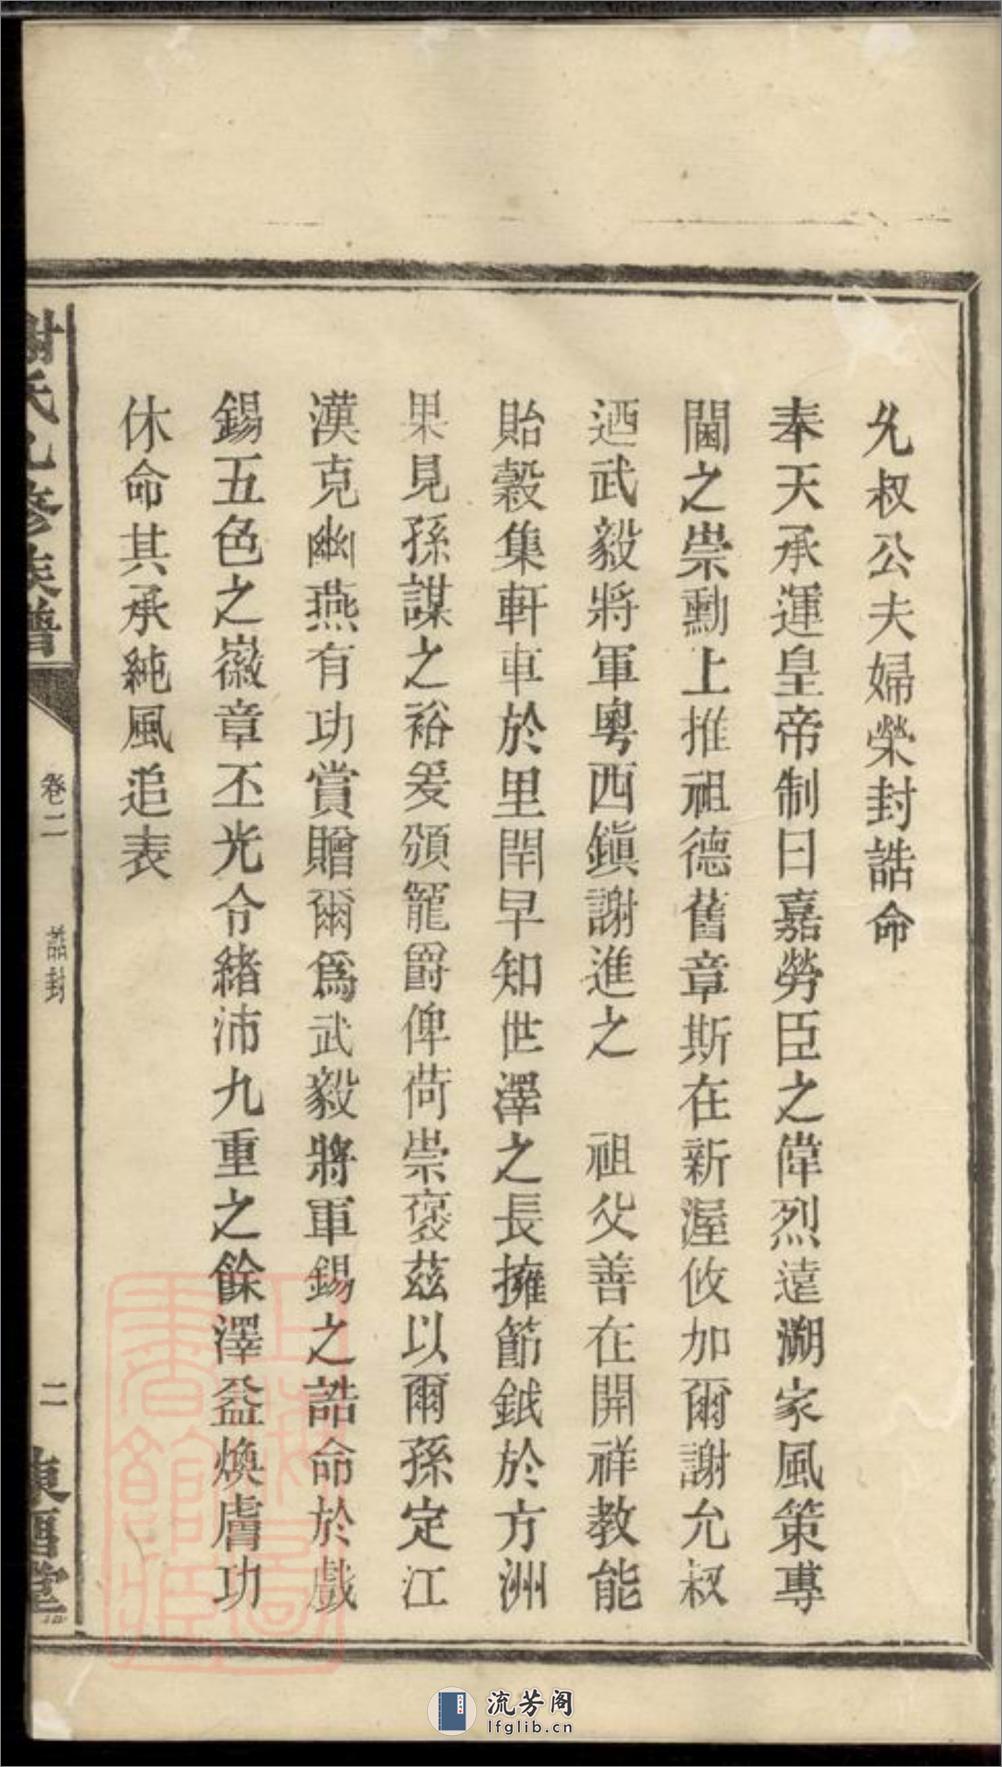 允叔公夫婦榮封誥命
奉天承運皇帝制曰嘉勞臣之偉烈遠溯家風策專
閫之崇勳上推祖德舊章斯在新渥攸加爾謝允叔
迺武毅將軍粵西鎭謝進之　祖父善在開祥教能
貽穀集軒車於里閈早知世澤之長擁節鉞於方洲
果見孫謀之裕爰頒寵爵俾荷崇褒茲以爾孫定江
漢克幽燕有功賞贈爾爲武毅將軍錫之誥命於戲
錫五色之徽章丕光令緒沛九重之餘澤益煥膚功
休命其承純風追表
謝氏九修族譜
卷二
誥封
二
東酉堂
上海圖書館藏
流芳阁
lfglib.cn